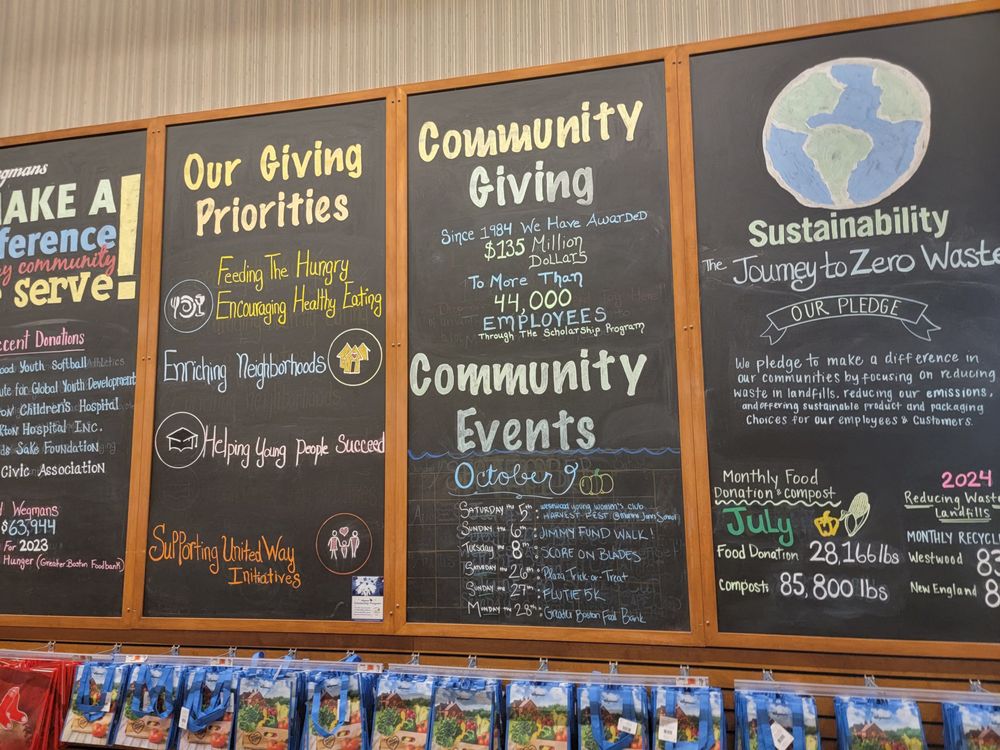 gmans
AKE A
ference
y community
serve!
ecent Donations
ood Youth Softball
ute for Global Youth Development
on Children's Hospital
kton Hospital Inc.
ds Sake Foundation
Civic Association
Wegmans
$63,944
For 2023
Hunger (Greater Boston Foodbank)
Our Giving
Priorities
Feeding The Hungry
Encouraging Healthy Eating
Enriching Neighborhoods
Helping Young People Succeed
Supporting United Way
Initiatives
Community
Giving
Since 1984 We Have Awarded
$135 Million
Dollars
To More Than
44,000
EMPLOYEES
Through The Scholarship Program
Community
Events
October
Saturday the 5th: westwood young women's club
HARVEST FEST
Sunday the 6th: JIMMY FUND WALK!
Tuesday the 8th: SCORE ON BLADES
Saturday the 26th: Plaza Trick-or-Treat
Sunday the 27th: FLUTIE 5K
Monday the 28th: Greater Boston Food Bank
Sustainability
The Journey to Zero Waste
OUR PLEDGE
We pledge to make a difference in
our communities by focusing on reducing
waste in landfills, reducing our emissions,
and offering sustainable product and packaging
choices for our employees & customers.
Monthly Food
Donation & compost
July
Food Donation 28,166 lbs
Compost: 85,800 lbs
2024
Reducing Waste
Landfills
MONTHLY RECYCL
Westwood 83
New England 8